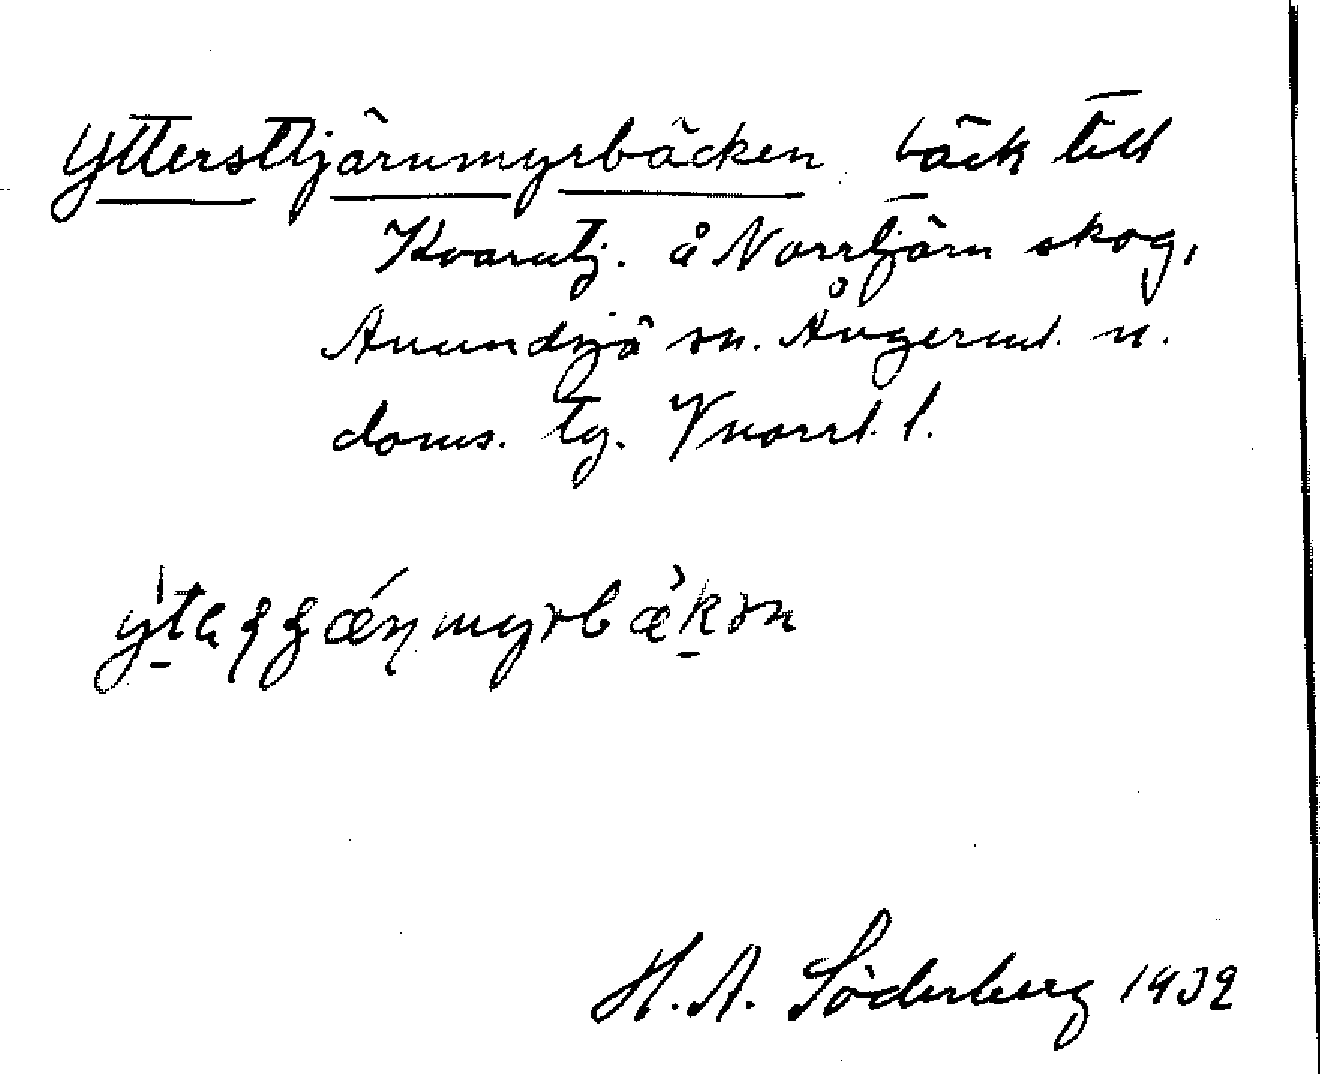 Yttersttjärnmyrbäcken bäck till
Kvarntj. å Norrtjärn skog,
Anundsjö sn. Ångerml. n.
doms. tg. Vnorrl. l.
H. A. Söderberg 1932